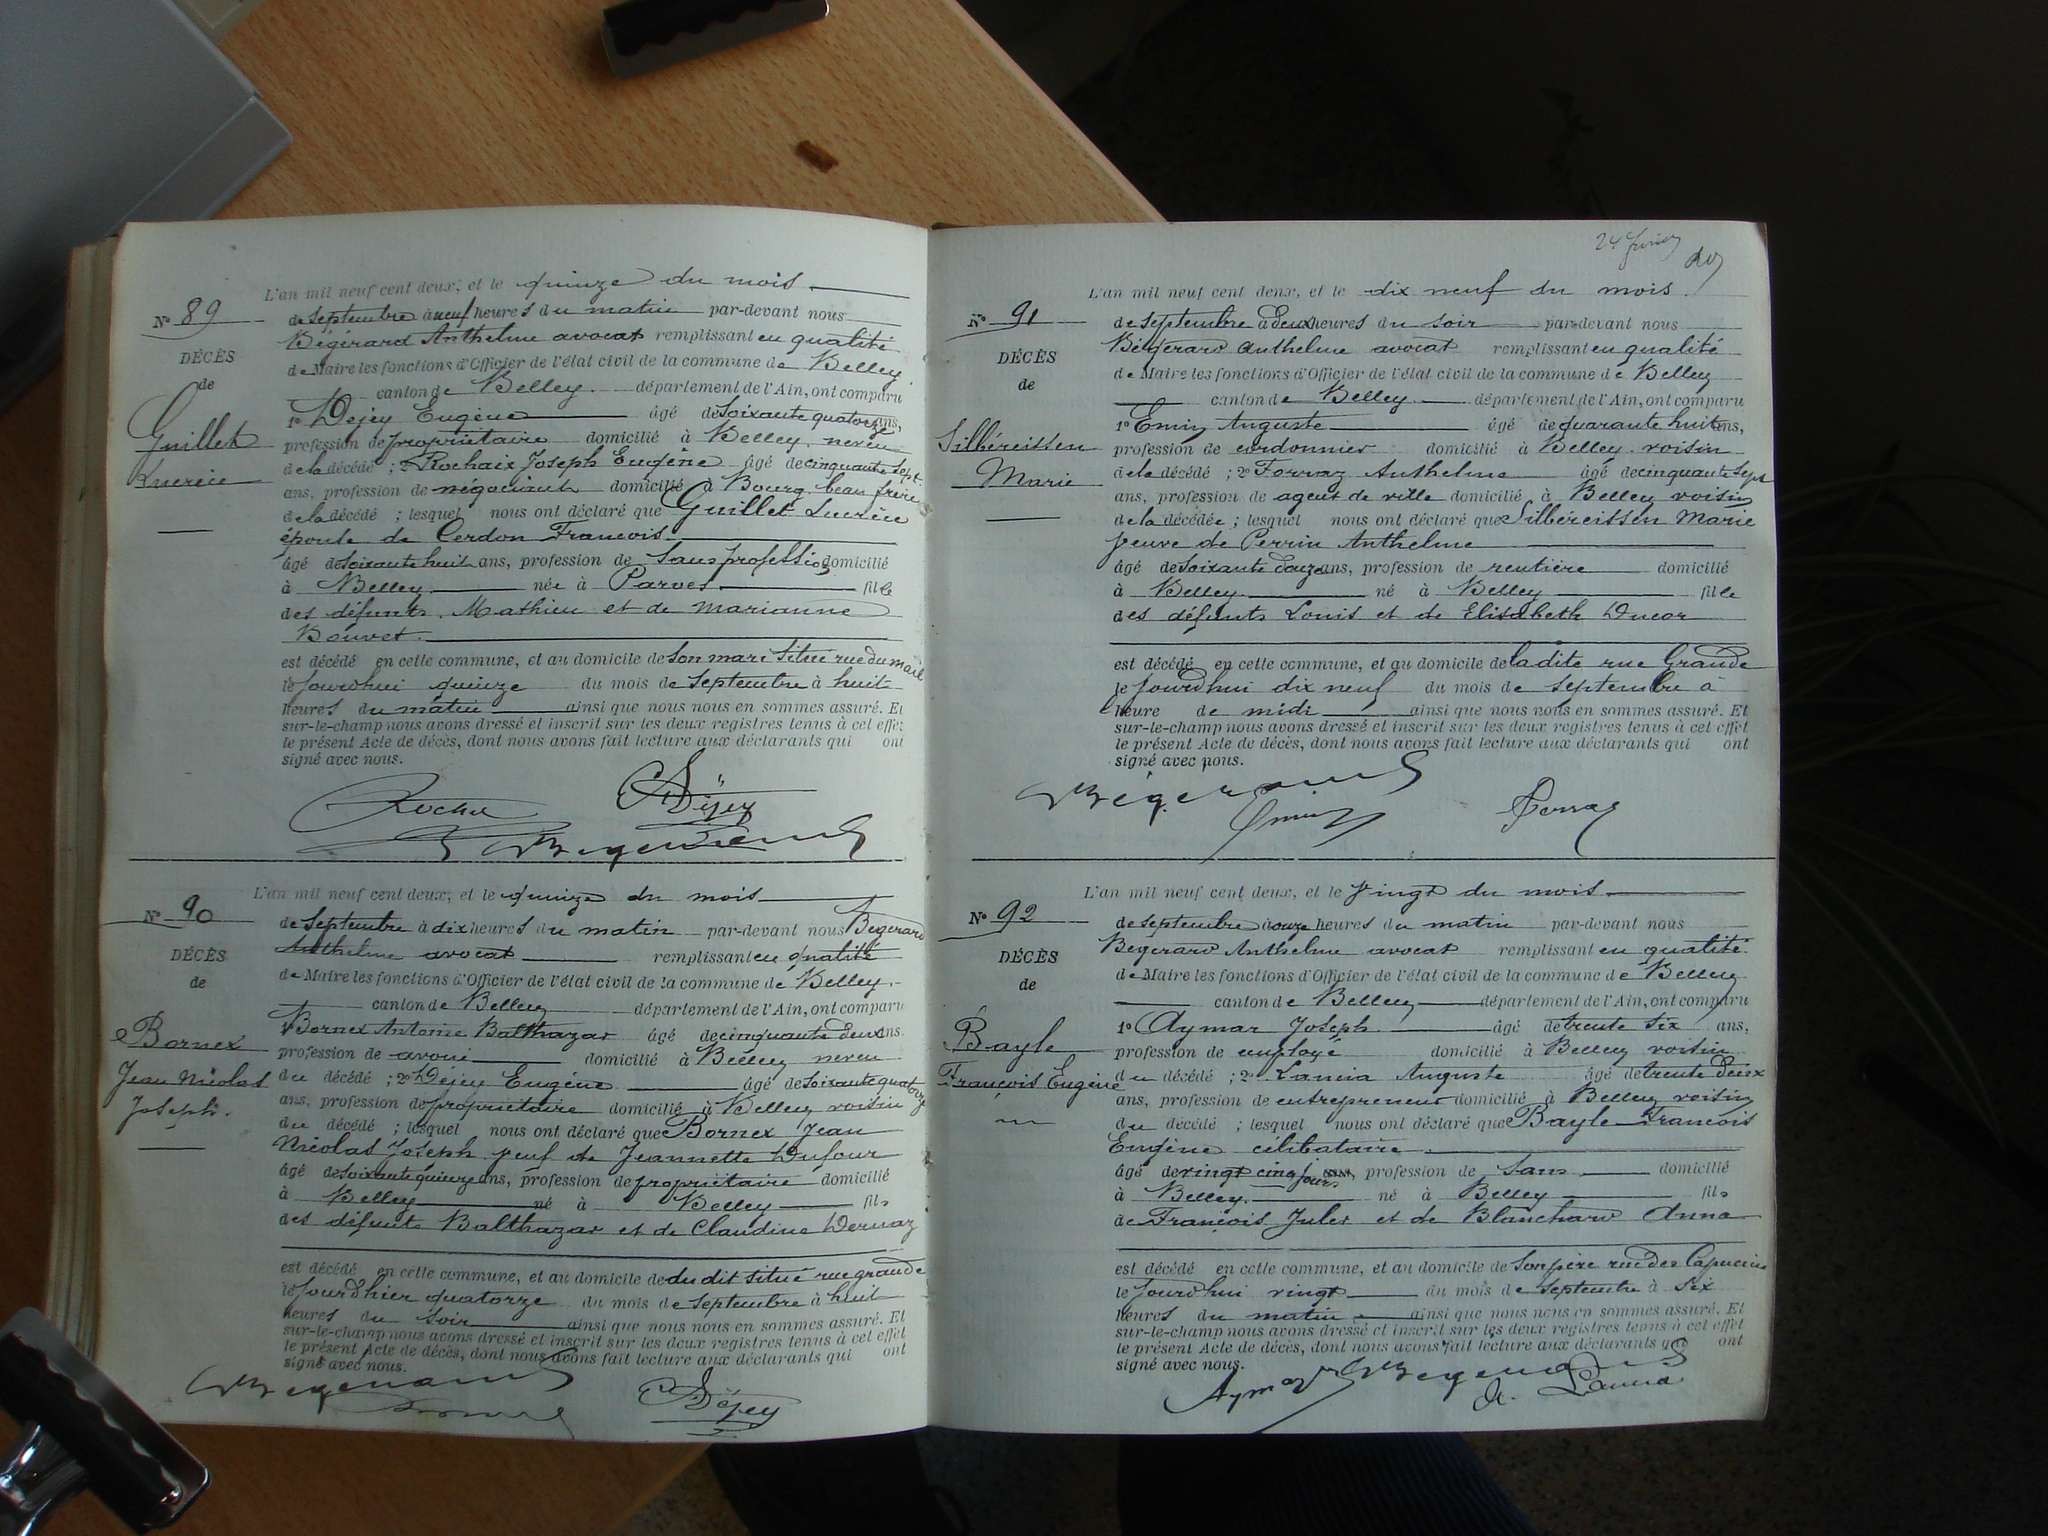 L'an mil neuf cent deux, et le quinze du mois
N° 89
de septembre à neuf heures du matin par-devant nous
Bégerard Anthelme avocat remplissant en qualité
DÉCÈS
de Maire les fonctions d'Officier de l'état civil de la commune de Belley
de
canton de Belley département de l'Ain, ont comparu
1° Dejey Eugène âgé de soixante quatorze ans,
Guillet
profession de propriétaire domicilié à Belley, neveu
de la décédé ; 2° Rochaix Joseph Eugène âgé de cinquante sept
Lucrèce
ans, profession de négociant domicilié à Bourg beau frère
de la décédé ; lesquel nous ont déclaré que Guillet Lucrèce
épouse de Cerdon François
âgé de soixante huit ans, profession de sans profession domicilié
à Belley née à Parves fille
des défunts Mathieu et de Marianne
Bouvet
est décédé en cette commune, et au domicile de son mari situé rue du mail
le jourdhui quinze du mois de septembre à huit
heures du matin ainsi que nous nous en sommes assuré. Et
sur-le-champ nous avons dressé et inscrit sur les deux registres tenus à cet effet
le présent Acte de décès, dont nous avons fait lecture aux déclarants qui ont
signé avec nous.
Déjey
L'an mil neuf cent deux, et le quinze du mois
N° 90
de septembre à dix heures du matin par-devant nous Bégerard
Anthelme avocat remplissant en qualité
DÉCÈS
de Maire les fonctions d'Officier de l'état civil de la commune de Belley
de
canton de Belley département de l'Ain, ont comparu
1° Bornex Antoine Balthazar âgé de cinquante deux ans
Bornex
profession de avoué domicilié à Belley neveu
Jean Nicolas
du décédé ; 2° Déjey Eugène âgé de soixante quatorze
Joseph.
ans, profession de propriétaire domicilié à Belley voisin
du décédé ; lesquel nous ont déclaré que Bornex Jean
Nicolas Joseph veuf de Jeannette Dufour
âgé de soixante quinze ans, profession de propriétaire domicilié
à Belley né à Belley fils
des défunts Balthazar et de Claudine Dernaz
est décédé en cette commune, et au domicile de du dit situé rue grande
le jourdhier quatorze du mois de septembre à huit
heures du soir ainsi que nous nous en sommes assuré. Et
sur-le-champ nous avons dressé et inscrit sur les deux registres tenus à cet effet
le présent Acte de décès, dont nous avons fait lecture aux déclarants qui ont
signé avec nous.
Déjey
L'an mil neuf cent deux, et le dix neuf du mois
N° 91
de septembre à deux heures du soir par-devant nous
Bégerard Anthelme avocat remplissant en qualité
DÉCÈS
de Maire les fonctions d'Officier de l'état civil de la commune de Belley
de
canton de Belley département de l'Ain, ont comparu
1° Emin Auguste âgé de quarante huit ans,
Silbéreissen
profession de cordonnier domicilié à Belley voisin
de la décédé ; 2° Ferraz Anthelme âgé de cinquante sept
Marie
ans, profession de agent de ville domicilié à Belley voisin
de la décédée ; lesquel nous ont déclaré que Silbéreissen Marie
veuve de Perrin Anthelme
âgé de soixante douze ans, profession de rentière domicilié
à Belley né à Belley fille
des défunts Louis et de Elisabeth Ducor
est décédé en cette commune, et au domicile de la dite rue Grande
le jourdhui dix neuf du mois de septembre à
heure de midi ainsi que nous nous en sommes assuré. Et
sur-le-champ nous avons dressé et inscrit sur les deux registres tenus à cet effet
le présent Acte de décès, dont nous avons fait lecture aux déclarants qui ont
signé avec nous.
L'an mil neuf cent deux, et le vingt du mois
N° 92
de septembre à onze heures du matin par-devant nous
Bégerard Anthelme avocat remplissant en qualité
DÉCÈS
de Maire les fonctions d'Officier de l'état civil de la commune de Belley
de
canton de Belley département de l'Ain, ont comparu
1° Aymar Joseph âgé de trente six ans,
Bayle
profession de employé domicilié à Belley voisin
François Eugène
du décédé ; 2° Lancia Auguste âgé de trente deux
ans, profession de entrepreneur domicilié à Belley voisin
du décédé ; lesquel nous ont déclaré que Bayle François
Eugène célibataire
âgé de vingt cinq jours, profession de sans domicilié
à Belley né à Belley fils
de François Jules et de Blanchard Anna
est décédé en cette commune, et au domicile de son père rue des Capucins
le jourdhui vingt du mois de septembre à six
heures du matin ainsi que nous nous en sommes assuré. Et
sur-le-champ nous avons dressé et inscrit sur les deux registres tenus à cet effet
le présent Acte de décès, dont nous avons fait lecture aux déclarants qui ont
signé avec nous.